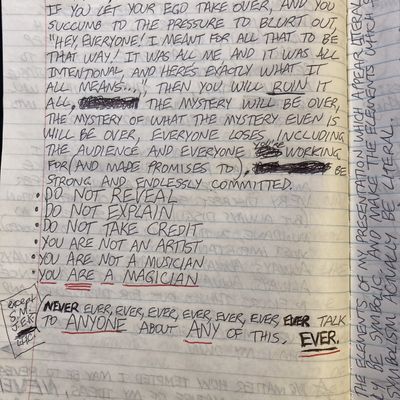 IF YOU LET YOUR EGO TAKE OVER, AND YOU
SUCCUMB TO THE PRESSURE TO BLURT OUT,
"HEY, EVERYONE! I MEANT FOR ALL THAT TO BE
THAT WAY! IT WAS ALL ME AND IT WAS ALL
INTENTIONAL, AND HERE'S EXACTLY WHAT IT
ALL MEANS...," THEN YOU WILL RUIN IT
ALL, THE MYSTERY WILL BE OVER,
THE MYSTERY OF WHAT THE MYSTERY EVEN IS
WILL BE OVER, EVERYONE LOSES, INCLUDING
THE AUDIENCE AND EVERYONE YOU'RE WORKING
FOR (AND MADE PROMISES TO), BE
STRONG AND ENDLESSLY COMMITTED.
• DO NOT REVEAL
• DO NOT EXPLAIN
• DO NOT TAKE CREDIT
• YOU ARE NOT AN ARTIST
• YOU ARE NOT A MUSICIAN
• YOU ARE A MAGICIAN
NEVER EVER, EVER, EVER, EVER, EVER, EVER, EVER TALK
TO ANYONE ABOUT ANY OF THIS, EVER.
EXCEPT
S.M.
THE ELEMENTS OF MY PRESENTATION WHICH APPEAR LITERAL
BE SYMBOLIC, AND MAKE THE ELEMENTS WHICH
SYMBOLISM ACTUALLY BE LITERAL.